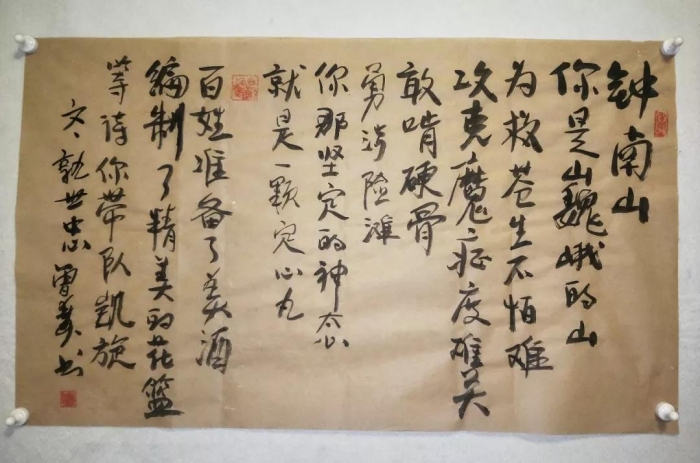 钟南山
你是巍峨的山
为救苍生不怕难
攻克魔症度难关
敢啃硬骨
勇涉险滩
你那坚定的神态
就是一颗定心丸
百姓准备了美酒
编制了精美的花篮
等待你带队凯旋
文、世忠 书